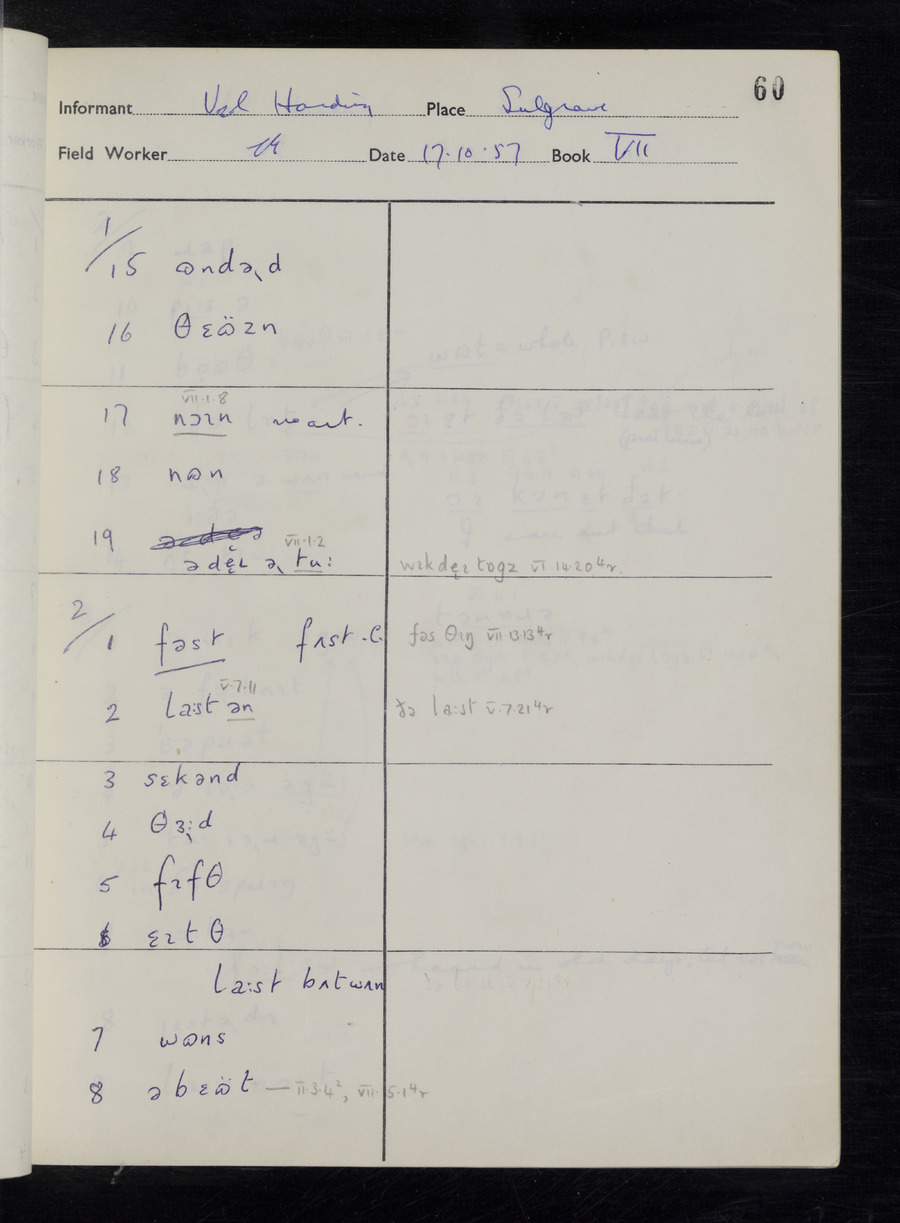 60
Informant Val Harding Place Sulgrave
Field Worker Date 17.10.57 Book VII
1/15 ɷndə̢d
16 θɛɷ̈zn
VII.1.8
17 nɔɪn no art.
18 nɷn
19 VII.1.2
ə dɛ̣ɪ ə̢ tu: wɪkdɛ̣ɪ togɪ VI.14.20⁴r.
2/1 fəst fɪst -C fəs θɪŋ VII 13.13⁴r
V.7.11
2 la:st ən ðə la:st V.7.21⁴r
3 sɛkənd
4 θɜ:̢d
5 fɪfθ
6 ɛɪtθ
la:st bɪtwɪn
7 wɷns
8 əbɛɷ̈t — II.3.4², VII.5.1⁴r